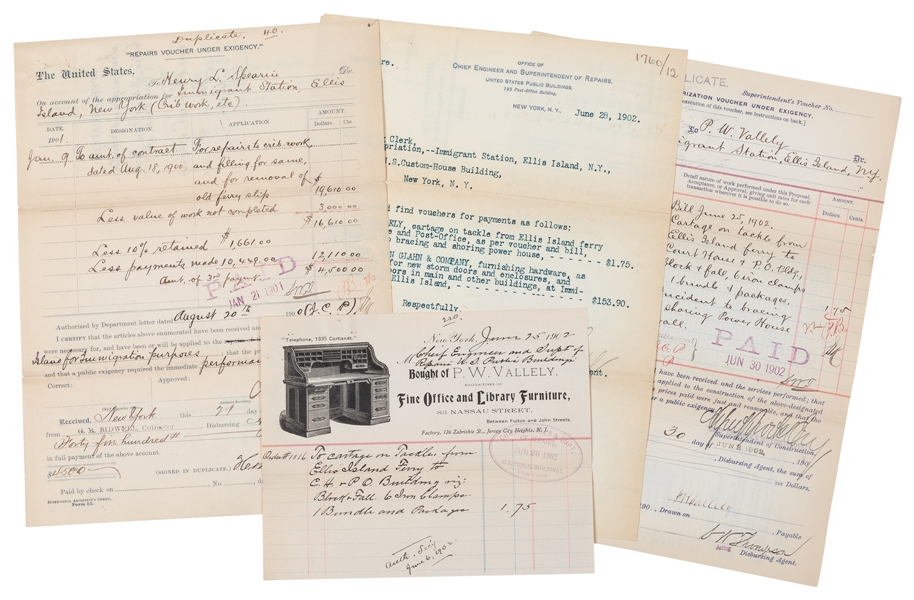 Duplicate. 40.
"REPAIRS VOUCHER UNDER EXIGENCY."
The United States,
To Henry L. Spearin Dr.
On account of the appropriation for Immigrant Station, Ellis
Island, New York (Crib work, etc)
DATE
1901.
DESIGNATION.
APPLICATION
AMOUNT.
Dollars Cts.
Jan. 9 To amt. of contract For repairs to crib work
dated Aug. 18, 1900. and filling for same,
and for removal of
old ferry slip $19,610.00
Less value of work not completed 3,000.00
$16,610.00
Less 10% retained $1,661.00
Less payments made 10,449.00 12,110.00
Amt. of 3rd paymt. $4,500.00
PAID
JAN 21 1901
Authorized by Department letter dated August 20th 190
I CERTIFY that the articles above enumerated have been received
were necessary for, and have been or will be applied to the
Island for immigration purposes
and that a public exigency required the immediate performan
Correct: Approved:
Received, New York this 21
from G. R. BIDWELL, Collector Disbursing
Forty five hundred
in full payment of the above account.
$4500
(SIGNED IN DUPLICATE.)
Paid by check on No.
Form 55.
1760/12
OFFICE OF
CHIEF ENGINEER AND SUPERINTENDENT OF REPAIRS,
UNITED STATES PUBLIC BUILDINGS,
NEW YORK, N.Y., June 28, 1902.
Clerk,
priation,--Immigrant Station, Ellis Island, N.Y.,
U.S.Custom-House Building,
New York, N. Y.
d find vouchers for payments as follows:
ELY, cartage on tackle from Ellis Island ferry
e and Post-Office, as per voucher and bill,
o bracing and shoring power house, - - - - - - - $1.75.
N GLAHN & COMPANY, furnishing hardware, as
for new storm doors and enclosures, and
oors in main and other buildings, at Immi-
Ellis Island, - - - - - - - - - - - - $153.90.
Respectfully,
230.
"Telephone, 1335 Cortlandt."
New York, June 25 1902
M Chief Engineer and Supt of
Repairs U.S Public Buildings
Bought of P. W. VALLELY,
MANUFACTURER OF
Fine Office and Library Furniture,
NASSAU STREET,
Between Fulton and John Streets.
Factory, 126 Zabriskie St., Jersey City Heights, N. J.
Order # 1016 To cartage on Tackle from
Ellis Island Ferry to
C.H. & P.O. Building viz:
Block & Fall 6 Iron Clamps
1 Bundle and Packages 1.75
JUN 28 1902
June 6, 1902.
PLICATE.
Superintendent's Voucher No.
RIZATION VOUCHER UNDER EXIGENCY.
To P. W. Vallely Dr.
igrant Station, Ellis Island, N.Y.
Detail nature of work performed under this Proposal
Acceptance, or Approval, giving unit rates for each
transaction wherever it is possible to do so.
AMOUNT.
Dollars. Cents.
Bill June 25, 1902.
Cartage on tackle from
Ellis Island ferry to
Court House & P.O. Bldg.,
Block & fall, 6 iron clamps
1 bundle & packages,
incident to bracing
shoring Power House
wall. 1 75
PAID
JUN 30 1902
have been received and the services performed; that
applied to the construction of the above-designated
the prices paid were just and reasonable, and that the
r a public exigency.
Superintendent of Construction.
30 day of JUNE 1902, 190
Disbursing Agent, the sum of
Dollars,
190 . Drawn on
Payable
Disbursing Agent.